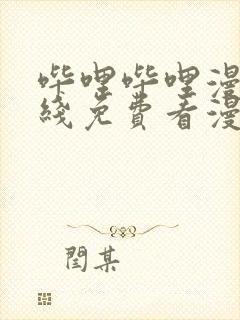 哔哩哔哩漫
线免费看漫
闫某